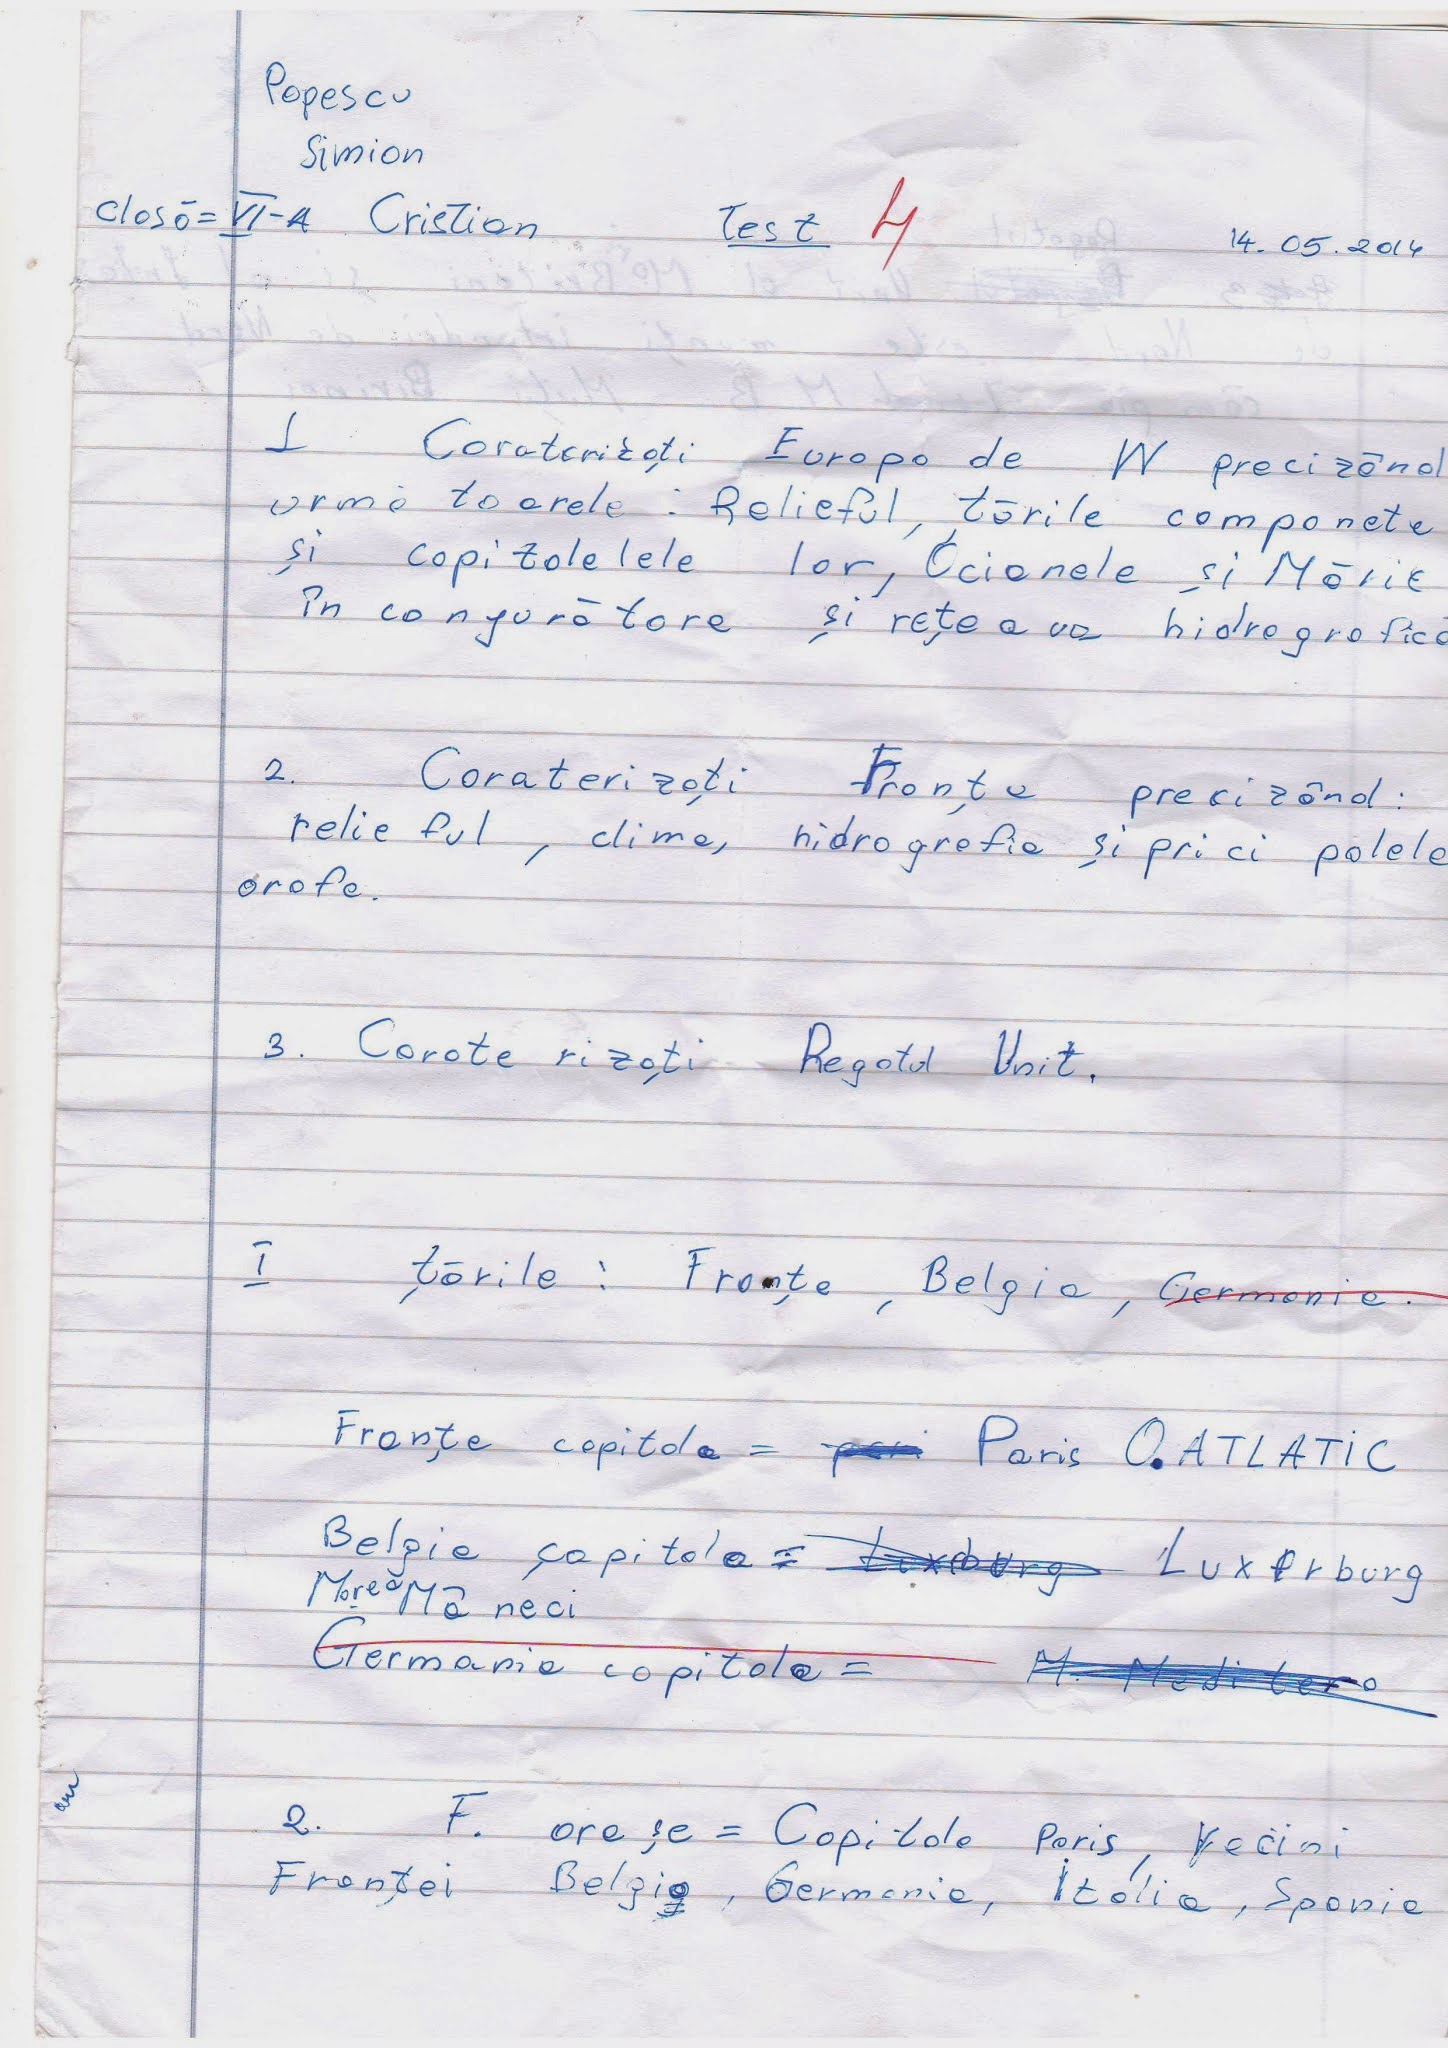 Popescu
Simion
Clasă = VI-A Cristian Test 4 14.05.2014
1 Caraterizați Europa de W precizând
urmă toarele : Relieful, țările componete
și capitolelele lor, Ocianele și Mările
în conjurătore și rețeaua hidrografică
2. Caraterizați Franța precizând :
relieful, clima, hidrografia și prici palele
orașe.
3. Caraterizați Regatul Unit.
I țările : Franța, Belgia, Germania.
Franța capitala = Paris O. ATLATIC
Belgia capitala = Luxerburg
Marea Mâ neci
Germania capitala =
2. F. orașe = Capitala Paris, Vecini
Franței Belgia, Germania, Italia, Spania